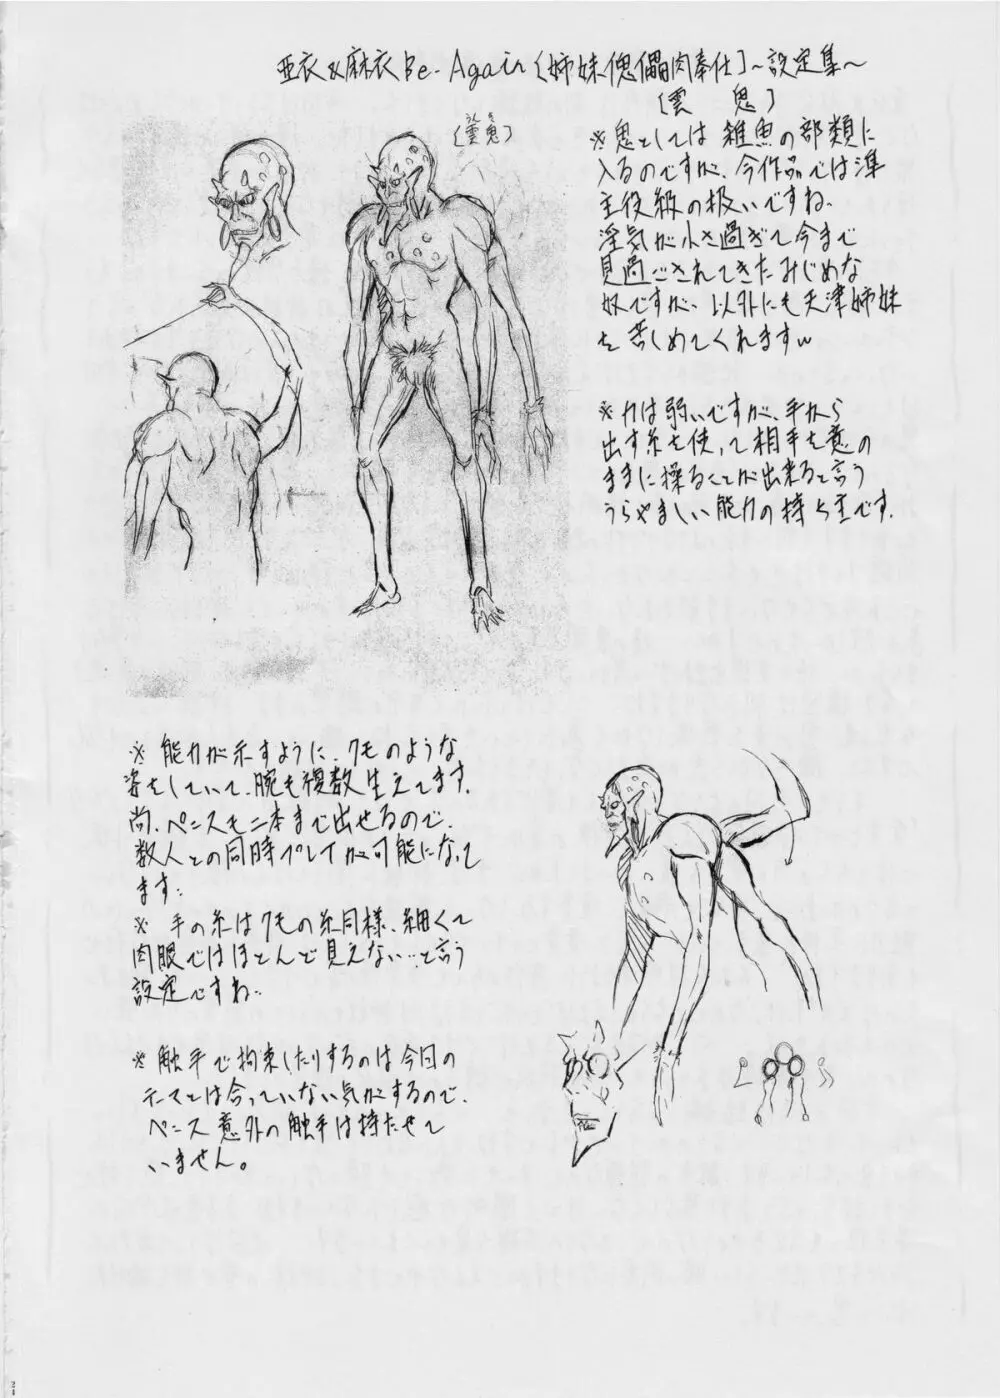 亜衣&麻衣Be-Again〔姉妹傀儡肉奉仕〕～設定集～
〔雲鬼〕
うんき
〔雲鬼〕
※鬼としては雑魚の部類に
入るのですが、今作品では準
主役級の扱いですね、
淫気が小さ過ぎて今まで
見過ごされてきたみじめな
奴ですが、以外にも天津姉妹
を苦しめてくれますw
※力は弱いですが、手から
出す糸を使って相手を意の
ままに操ることが出来ると言う
うらやましい能力の持ち主です.
※能力が示すように、クモのような
姿をしていて、腕も複数生えてます.
尚、ペニスも二本まで出せるので、
数人との同時プレイが可能になって
ます.
※手の糸はクモの糸同様、細くて
肉眼ではほとんど見えない…と言う
設定ですね..
※触手で拘束したりするのは今回の
テーマとは合っていない気がするので、
ペニス意外の触手は持たせて
いません。
21